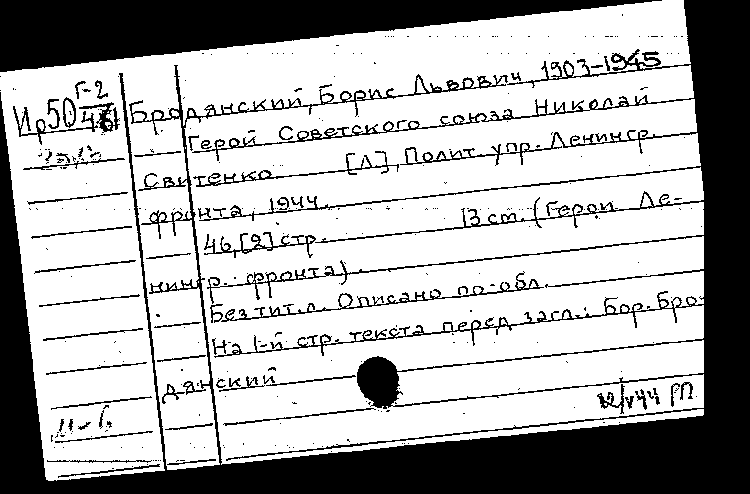 Г-2
Ир50 Бродянский, Борис Львович, 1903-1945
Герой Советского союза Николай
Свитенко [Л], Полит. упр. Ленингр.
фронта, 1944.
46,[2] стр. 13 см. (Герои Ле-
нингр. фронта).
Без тит. л. Описано по обл.
На 1-й стр. текста перед загл.: Бор. Бро-
дянский